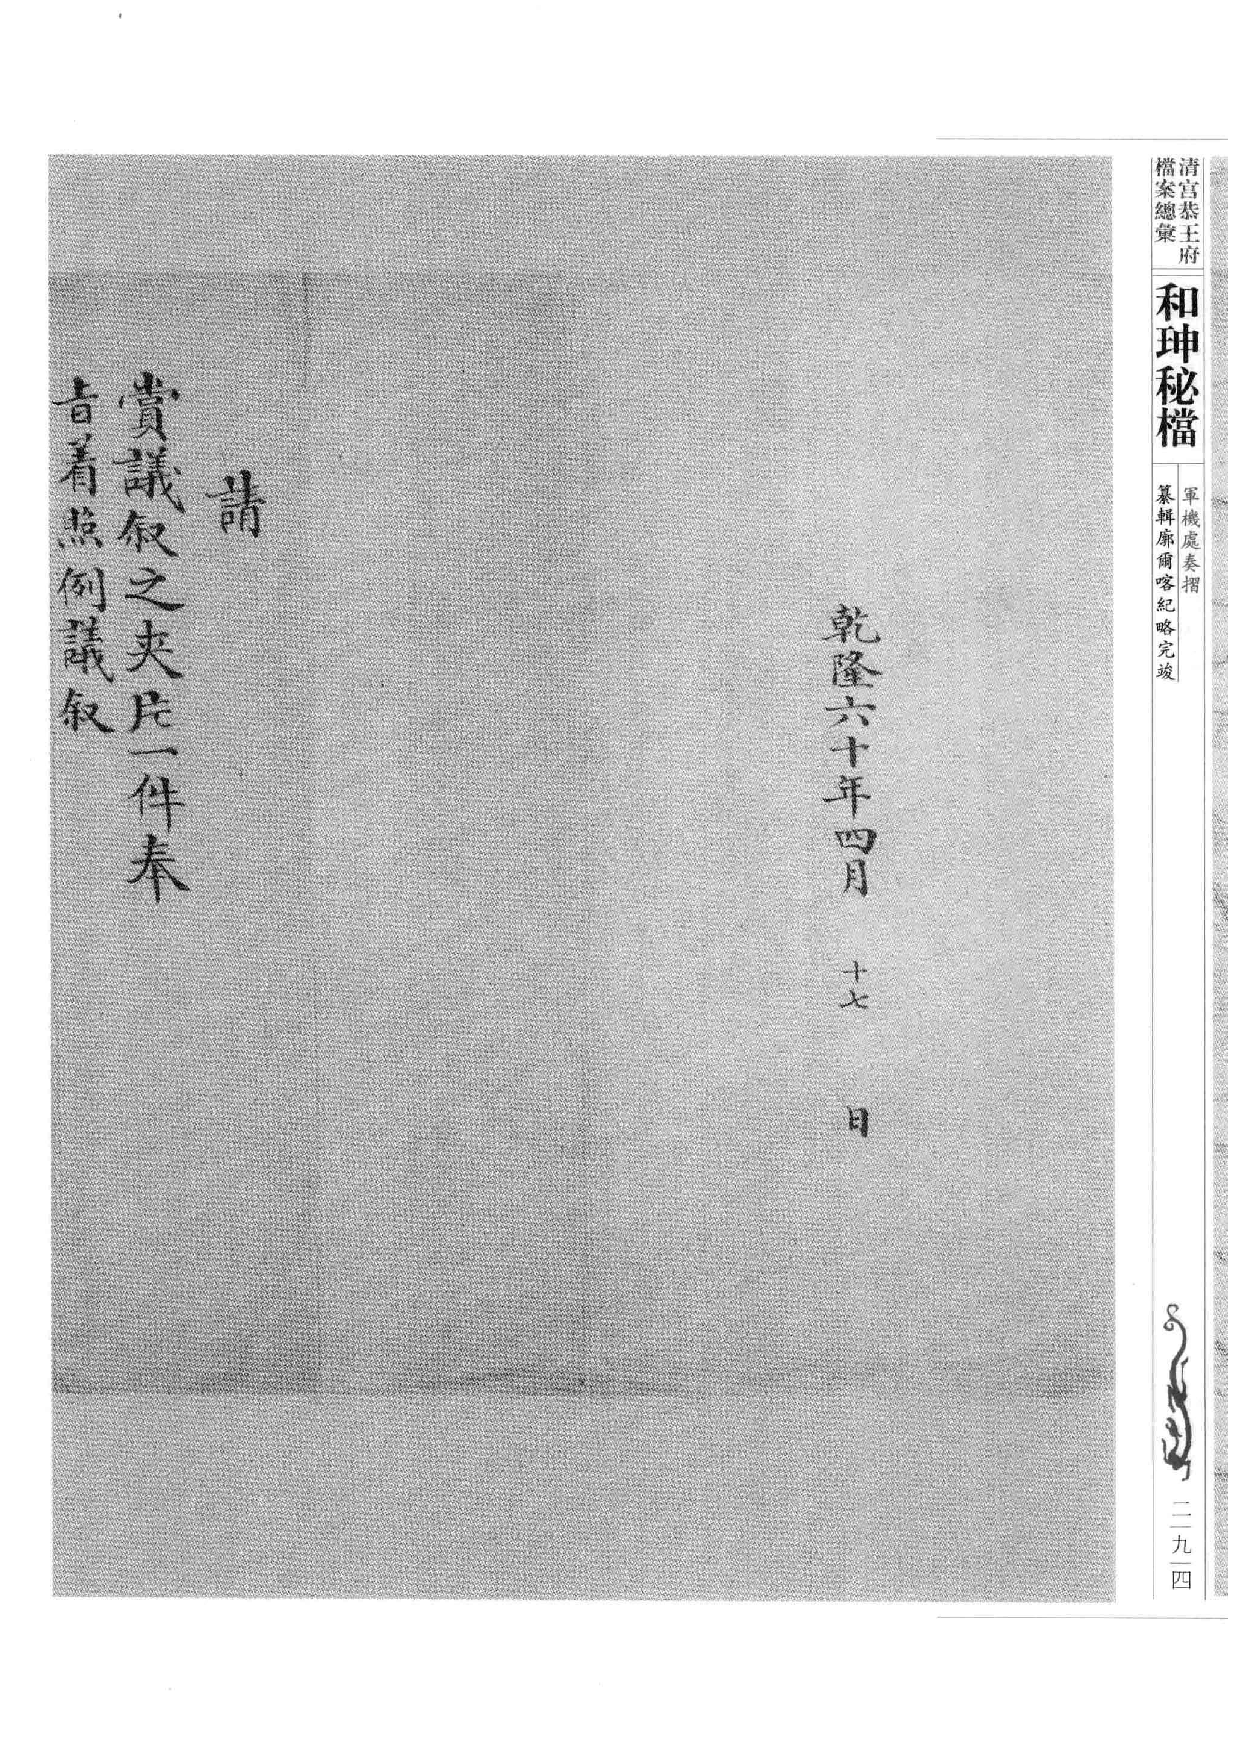 清宫恭王府
檔案總彙
和珅秘檔
軍機處奏摺
纂輯廓爾喀紀略完竣
二九四
乾隆六十年四月 十七 日
請
賞議叙之夾片一件奉
旨着照例議叙